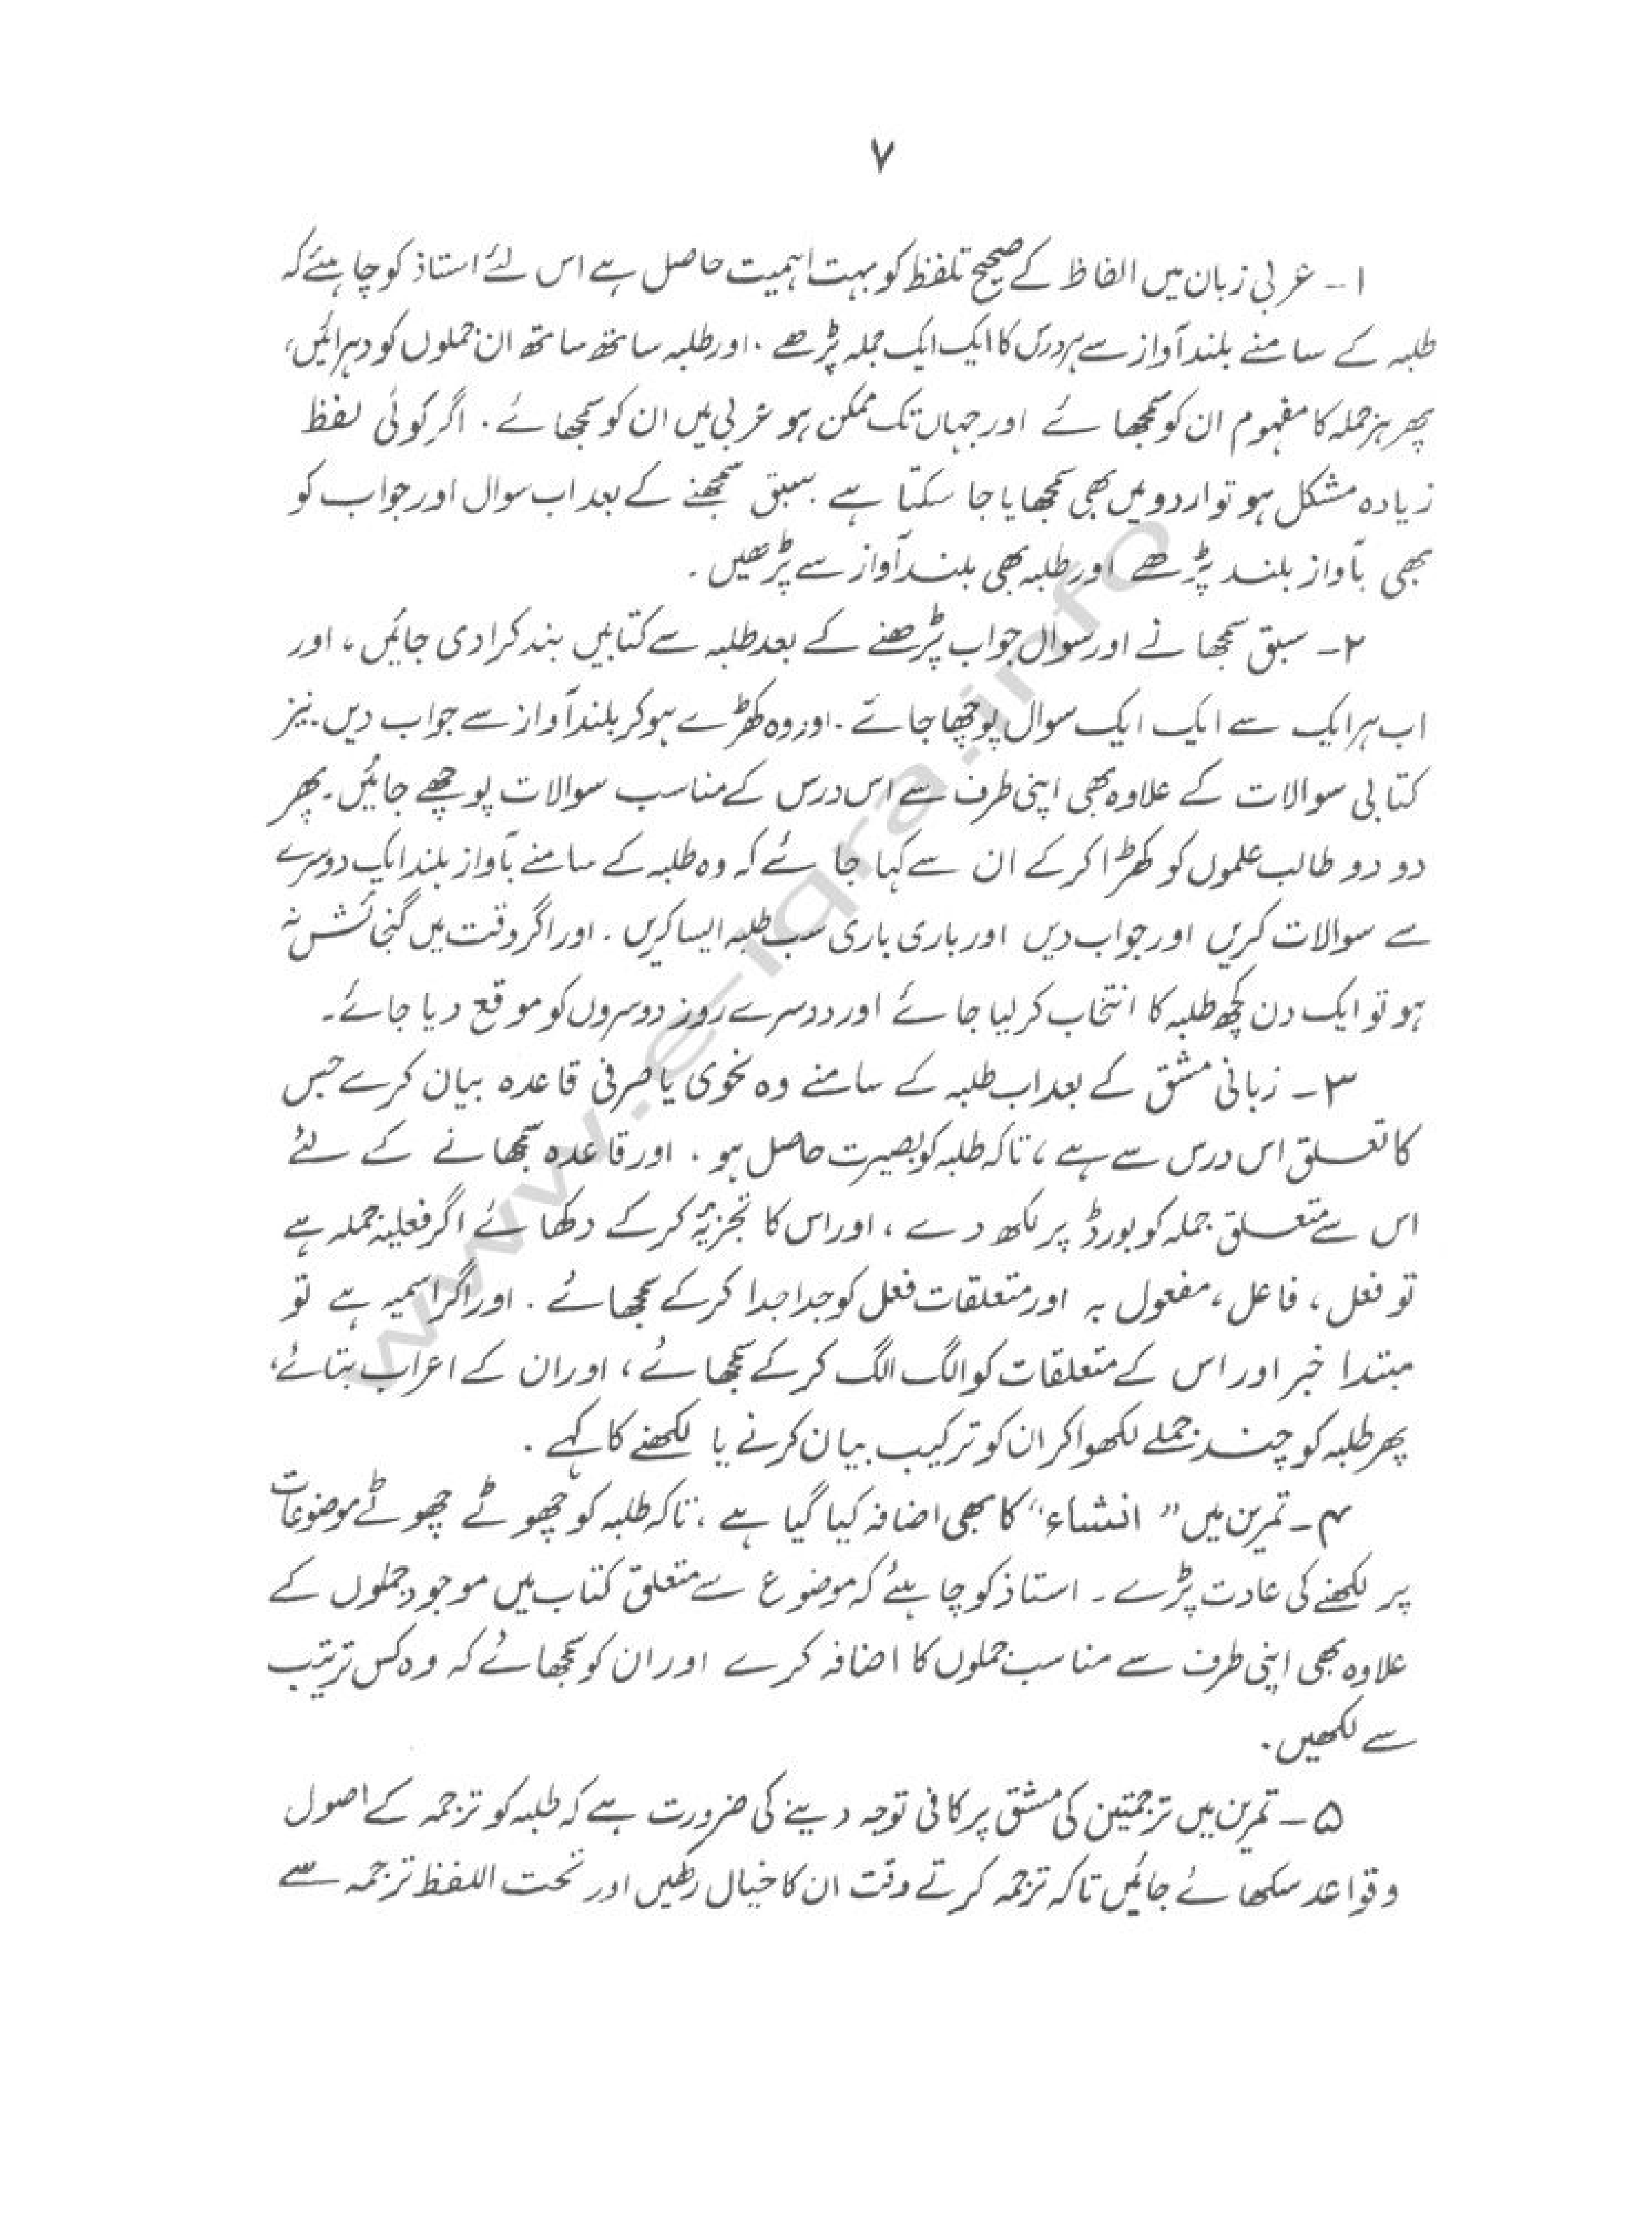 ۷
۱ـ عربی زبان میں الفاظ کے صحیح تلفظ کو بہت اہمیت حاصل ہے اس لئے استاذ کو چاہئے کہ
طلبہ کے سامنے بلند آواز سے ہر درس کا ایک ایک جملہ پڑھے ۔ اور طلبہ ساتھ ساتھ ان جملوں کو دہرائیں،
پھر ہر جملہ کا مفہوم ان کو سمجھائے اور جہاں تک ممکن ہو عربی میں ان کو سمجھائے ۔ اگر کوئی لفظ
زیادہ مشکل ہو تو اردو میں بھی سمجھایا جا سکتا ہے ۔ سبق سمجھنے کے بعد اب سوال اور جواب کو
بھی بآواز بلند پڑھے اور طلبہ بھی بلند آواز سے پڑھیں ۔
۲ـ سبق سمجھانے اور سوال جواب پڑھنے کے بعد طلبہ سے کتابیں بند کرا دی جائیں ، اور
اب ہر ایک سے ایک ایک سوال پوچھا جائے ۔ اور وہ کھڑے ہو کر بلند آواز سے جواب دیں ۔ نیز
کتابی سوالات کے علاوہ بھی اپنی طرف سے اس درس کے مناسب سوالات پوچھے جائیں ۔ پھر
دو دو طالب علموں کو کھڑا کر کے ان سے کہا جائے کہ وہ طلبہ کے سامنے بآواز بلند ایک دوسرے
سے سوالات کریں اور جواب دیں اور باری باری سب طلبہ ایسا کریں ۔ اور اگر وقت میں گنجائش نہ
ہو تو ایک دن کچھ طلبہ کا انتخاب کر لیا جائے اور دوسرے روز دوسروں کو موقع دیا جائے ۔
۳ـ زبانی مشق کے بعد اب طلبہ کے سامنے وہ نحوی یا صرفی قاعدہ بیان کرے جس
کا تعلق اس درس سے ہے ، تاکہ طلبہ کو بصیرت حاصل ہو ۔ اور قاعدہ سمجھانے کے لئے
اس سے متعلق جملہ کو بورڈ پر لکھ دے ، اور اس کا تجزیہ کر کے دکھائے اگر فعلیہ جملہ ہے
تو فعل ، فاعل ، مفعول بہ اور متعلقات فعل کو جدا جدا کر کے سمجھائے ۔ اور اگر اسمیہ ہے تو
مبتدا خبر اور اس کے متعلقات کو الگ الگ کر کے سمجھائے ، اور ان کے اعراب بتائے ،
پھر طلبہ کو چند جملے لکھوا کر ان کو ترکیب بیان کرنے یا لکھنے کا کہے ۔
۴ـ تمرین میں ”انشاء“ کا بھی اضافہ کیا گیا ہے ، تاکہ طلبہ کو چھوٹے چھوٹے موضوعات
پر لکھنے کی عادت پڑے ۔ استاذ کو چاہئے کہ موضوع سے متعلق کتاب میں موجود جملوں کے
علاوہ بھی اپنی طرف سے مناسب جملوں کا اضافہ کرے اور ان کو سمجھائے کہ وہ کس ترتیب
سے لکھیں ۔
۵ـ تمرین میں ترجمتین کی مشق پر کافی توجہ دینے کی ضرورت ہے کہ طلبہ کو ترجمہ کے اصول
و قواعد سکھائے جائیں تاکہ ترجمہ کرتے وقت ان کا خیال رکھیں اور تحت اللفظ ترجمہ سے
www.e-iqra.info